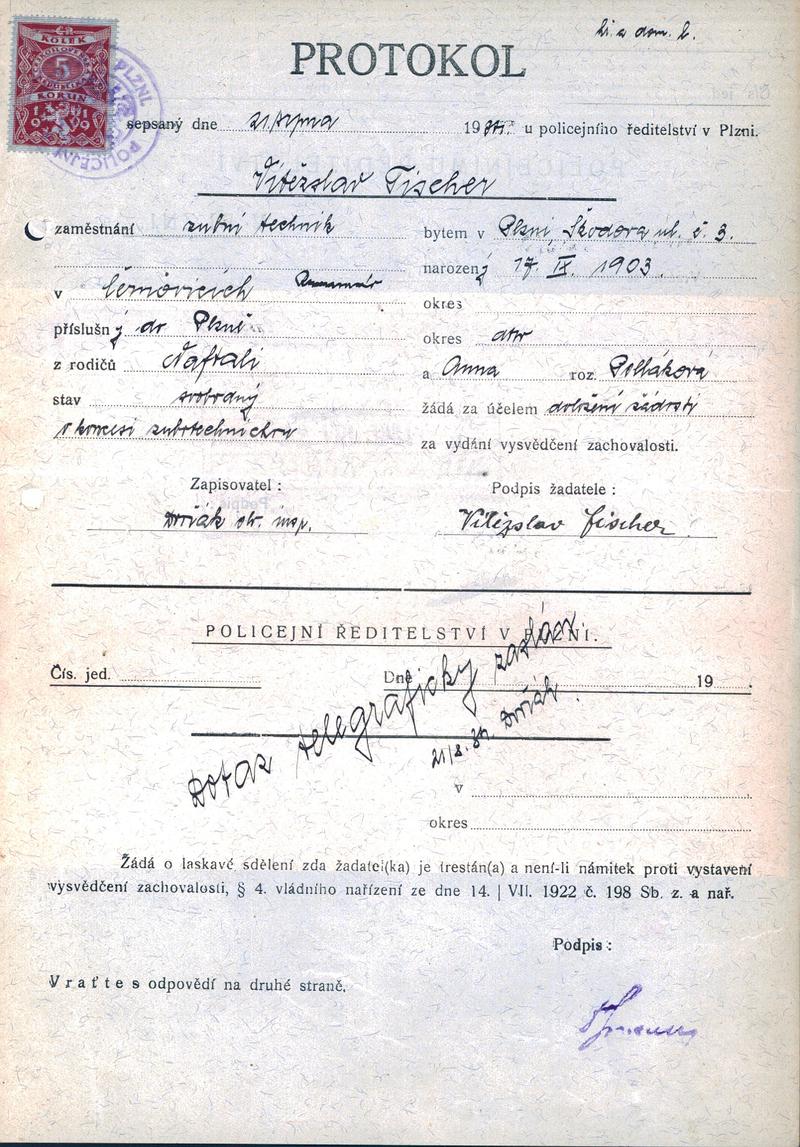 KOLEK
5
KORUN
1919
PLZNI
POLICEJNÍ
PROTOKOL
sepsaný dne 21. srpna 19 u policejního ředitelství v Plzni.
Vítězslav Fischer
zaměstnání zubní technik bytem v Plzni, Škodova ul. č. 3.
narozený 17. IX. 1903.
v Černovicích okres
příslušný do Plzně okres dtto
z rodičů Naftali a Anna roz. Polláková
stav svobodný žádá za účelem doložení žádosti
o koncesi zubotechnickou za vydání vysvědčení zachovalosti.
Zapisovatel: Podpis žadatele:
Dvořák str. insp. Vítězslav Fischer
POLICEJNÍ ŘEDITELSTVÍ V PLZNI.
Čís. jed. Dne 19
Dotaz telegraficky zaslán
21/8. Dvořák.
v
okres
Žádá o laskavé sdělení zda žadatel(ka) je trestán(a) a není-li námitek proti vystavení
vysvědčení zachovalosti, § 4. vládního nařízení ze dne 14. | VII. 1922 č. 198 Sb. z. a nař.
Podpis:
Vraťte s odpovědí na druhé straně.